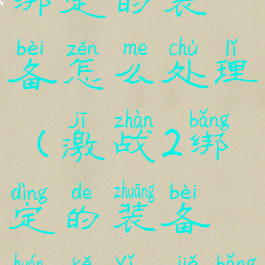 绑定的装
bèi zěn me chù lǐ
备怎么处理
jī zhàn bǎng
(激战2绑
dìng de zhuāng bèi
定的装备